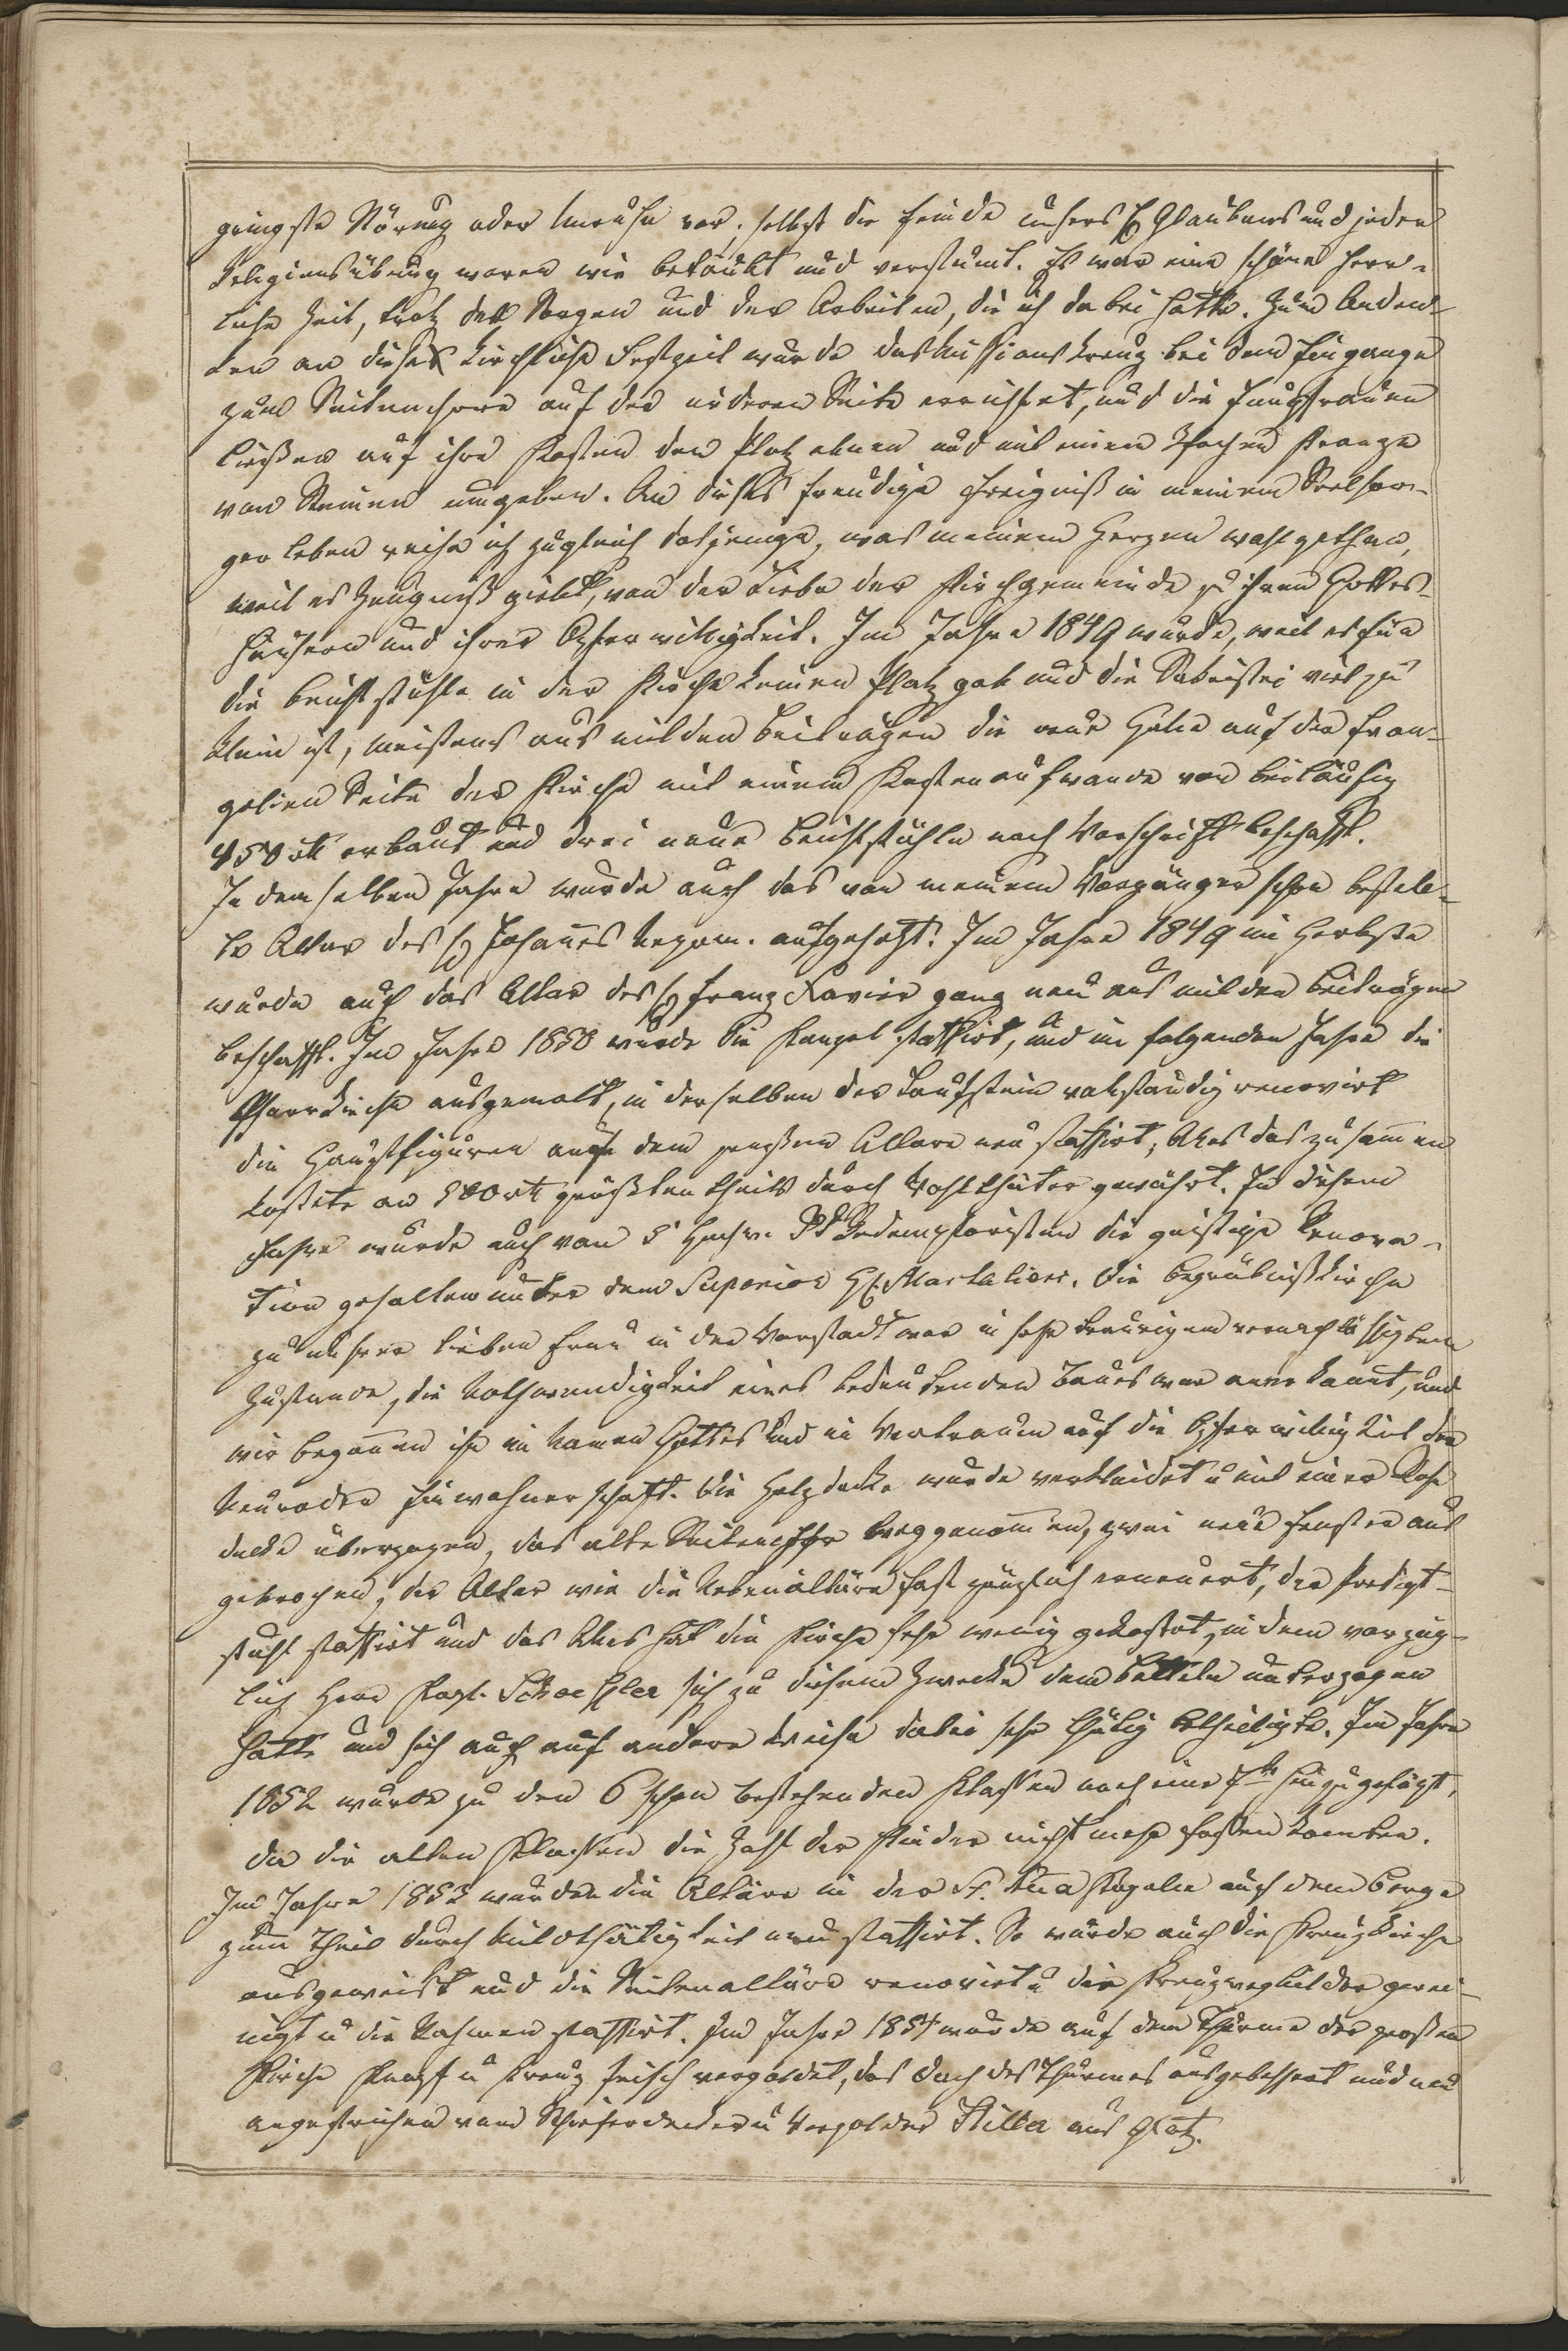 gringste Störung oder Unruhe vor; selbst die Feinde unsers h. Glaubens und jeder
Religionsübung waren wie betäubt und verstumt. Es war eine schöne herr-
liche Zeit, trotz der Sorgen und der Arbeiten, die ich dabei hatte. Zum Anden-
ken an diese kirchliche Festzeit wurde das Missionskreuz bei dem Eingange
zum Seitenchore auf der niederen Seite errichtet, und die Jungfrauen
ließen auf ihre Kosten den Platz ebnen und mit einem Kranze
von Steinen umgeben. An dieses freudige Ereigniß in meinem Seelsor-
ger Leben reihe ich zugleich dasjenige, was meinem Herzen wohl gethan,
weil es Zeugniß giebt, von der Liebe der Kirchgemeinde zu ihren Gottes-
häusern und ihrer Opferwilligkeit. Im Jahre 1849 wurde, weil es für
die Beichtstühle in der Kirche keinen Platz gab und die Sakristei viel zu
klein ist, meistens aus milden Beiträgen die neue Halle auf der Evan-
gelien Seite der Kirche mit einem Kostenaufwande von beiläufig
450 rtl erbaut und drei neue Beichtstühle nach Vorschrift beschafft.
In demselben Jahre wurde auch das von meinem Vorgänger schon bestell-
te Altar des h. Johannes Nepom. aufgesetzt. Im Jahre 1849 im Herbste
wurde auch das Altar des h. Franz Xavier ganz neu aus milden Beiträgen
beschafft. Im Jahre 1850 wurde die Kanzel staffirt, und im folgenden Jahre die
Pfarrkirche ausgemalt, in derselben der Taufstein vollständig renovirt
die Hauptfiguren auf dem großen Altare neu staffirt, Alles das zusammen
kostete an 500 rtl größten theils durch Wohlthäter gewährt. In diesem
Jahre wurde auch von 5 Hochw. PP Redemptoristen die geistige Renova-
tion gehalten unter dem Superior H. Mastalieri. Die Begräbnißkirche
zu unserer lieben Frau in der Vorstadt war in sehr traurigem vernachlässigtem
Zustande, die Nothwendigkeit eines bedeutenden Baues war anerkannt, und
wir begannen ihn im Namen Gottes und im Vertrauen auf die Opferwilligkeit der
Neuroder Einwohnerschaft. Die Holzdecke wurde verkleidet u mit einer Rohr
decke überzogen, das alte Seitenchor weggenommen, zwei neue Fenster aus
gebrochen, der Altar wie die Nebenaltäre fast gänzlich erneuert, der Predigt-
stuhl staffirt und das Alles hat die Kirche sehr wenig gekostet, indem vorzüg-
lich Herr Kapl. sich zu diesem Zwecke dem Betteln unterzogen
hatte und sich auch auf andere Weise dabei sehr thätig betheiligte. Im Jahre
1852 wurde zu den 6 schon bestehenden Klassen noch eine 7te hinzugefügt,
da die alten Klassen die Zahl der Kinder nicht mehr fassen konnten.
Im Jahre 1853 wurden die Altäre in der St. Anna Kapelle auf dem Berge
zum Theil durch Mildthätigkeit neu staffirt. So wurde auch die Kreuzkirche
ausgeweißt und die Seitenaltäre renovirt u die Kreuzwegbilder gerei-
nigt u die Rahmen staffirt. Im Jahre 1854 wurde auf dem Thurme der großen
Kirche Knopf u Kreuz frisch vergoldet, das Dach des Thurmes ausgebessert und neu
angestrichen vom Schieferdecker u Vergolder Stiller aus Glatz.